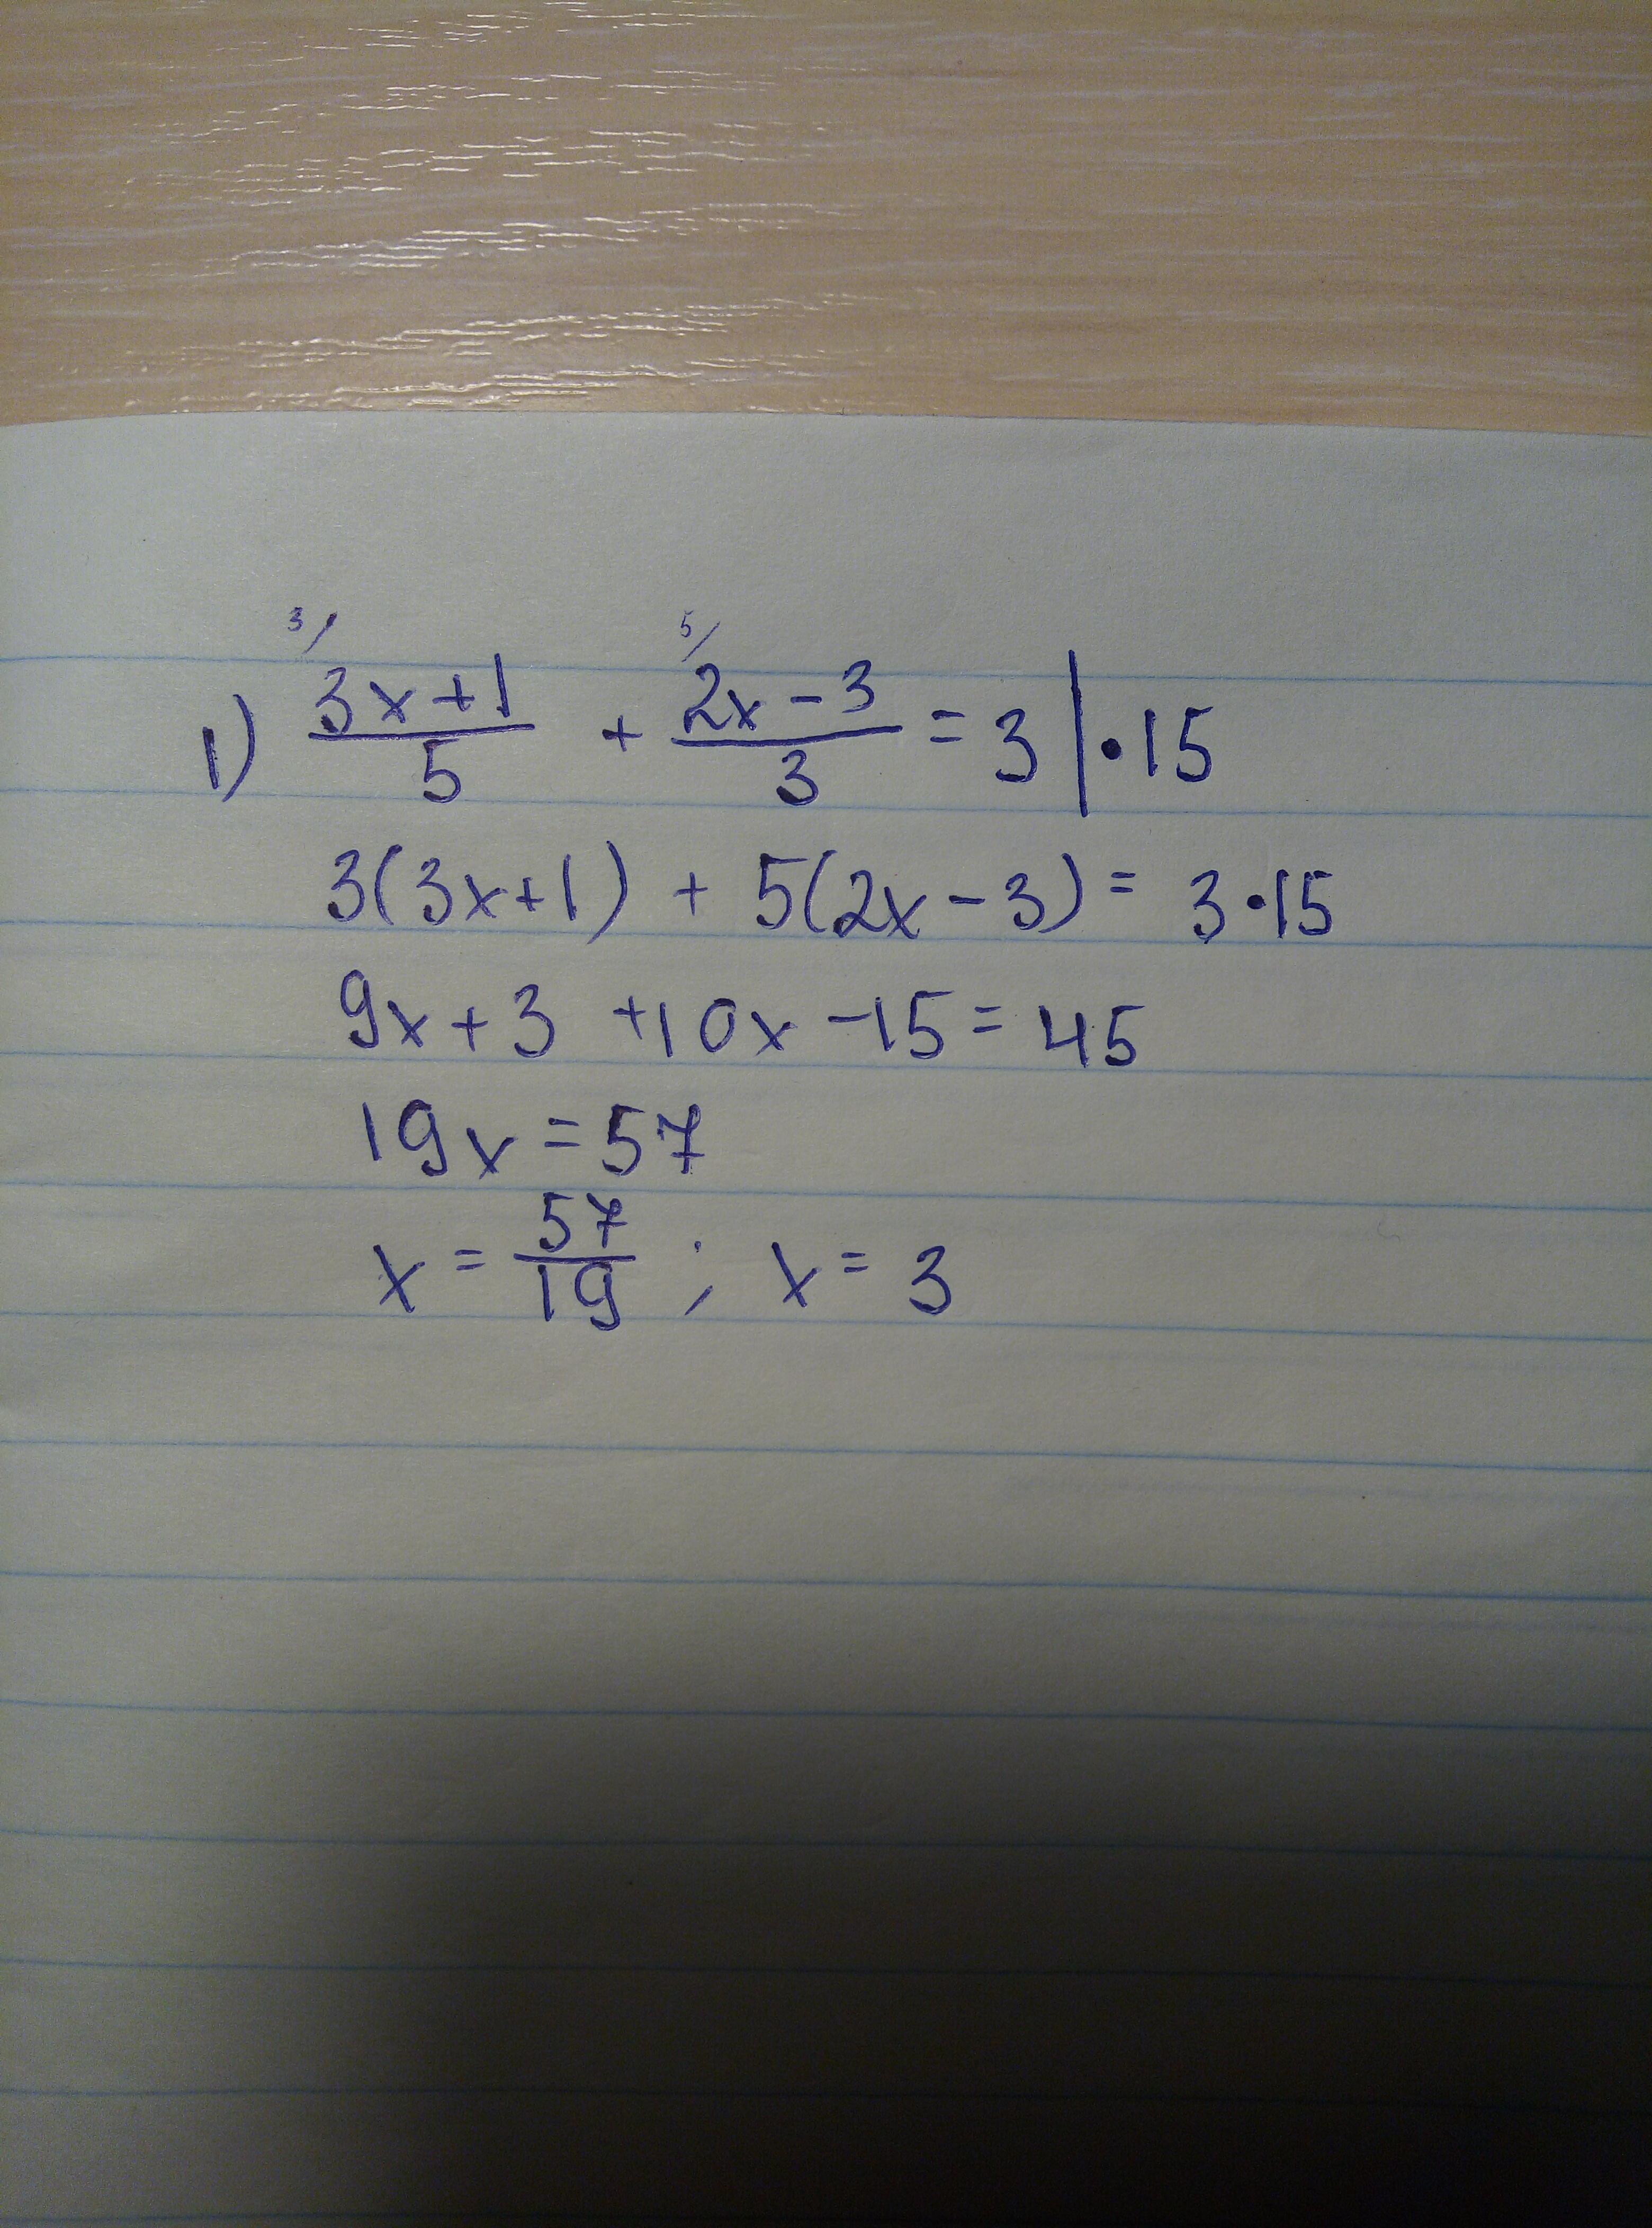 3/ 5/
1) (3x+1)/5 + (2x-3)/3 = 3 | •15
3(3x+1) + 5(2x-3) = 3•15
9x+3 +10x-15=45
19x=57
x = 57/19 ; x = 3